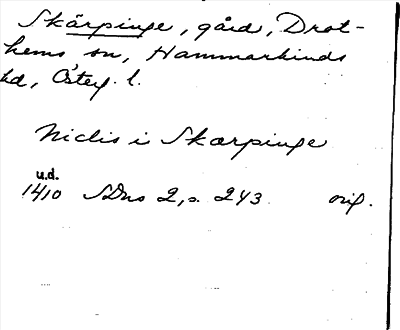 Skärpinge, gård, Drot-
hems sn, Hammarkinds
hd, Österg. l.
Niclis i Skærpinge
u.d.
1410 SDns 2, s. 243 orig.